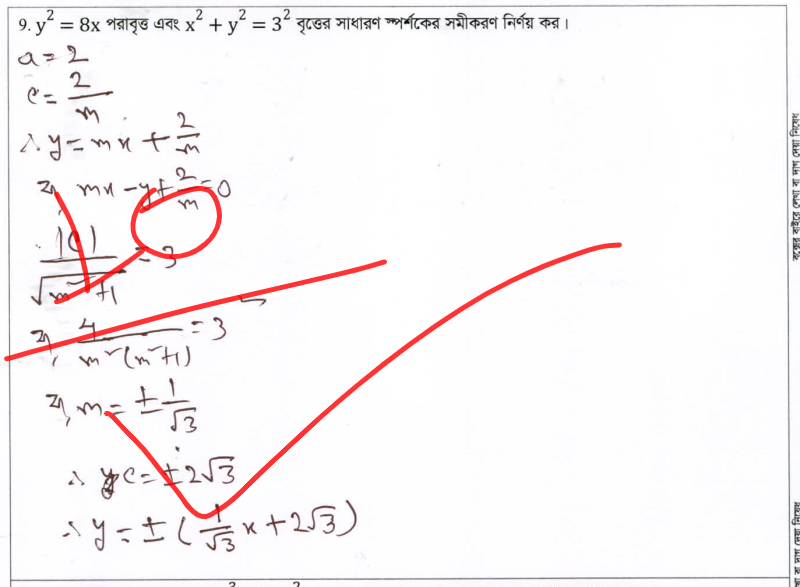 9. y² = 8x পরাবৃত্ত এবং x² + y² = 3² বৃত্তের সাধারণ স্পর্শকের সমীকরণ নির্ণয় কর।
a = 2
c = 2/m
∴ y = mx + 2/m
বা, mx - y + 2/m = 0
|c|/√(m²+1) = 3
বা, 4/(m²(m²+1)) = 3
বা, m = ± 1/√3
∴ c = ± 2√3
∴ y = ± (1/√3 x + 2√3)
বক্সের বাইরে লেখা বা দাগ দেয়া নিষেধ
বা দাগ দেয়া নিষেধ